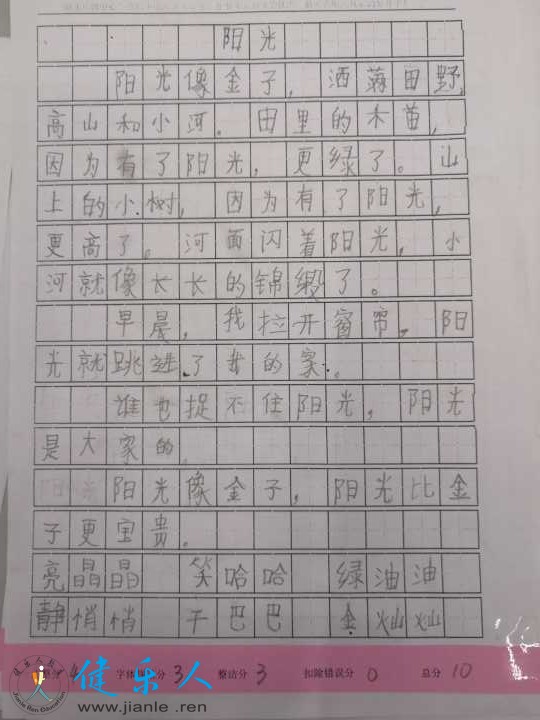 阳光
阳光像金子，洒满田野，
高山和小河。田里的禾苗，
因为有了阳光，更绿了。山
上的小树，因为有了阳光，
更高了。河面闪着阳光，小
河就像长长的锦缎了。
早晨，我拉开窗帘，阳
光就跳进了我的家。
谁也捉不住阳光，阳光
是大家的。
阳光像金子，阳光比金
子更宝贵。
亮晶晶 笑哈哈 绿油油
静悄悄 干巴巴 金灿灿
4 字体 分 3 整洁分 3 扣除错误分 0 总分 10
健乐人
www.jianle.ren